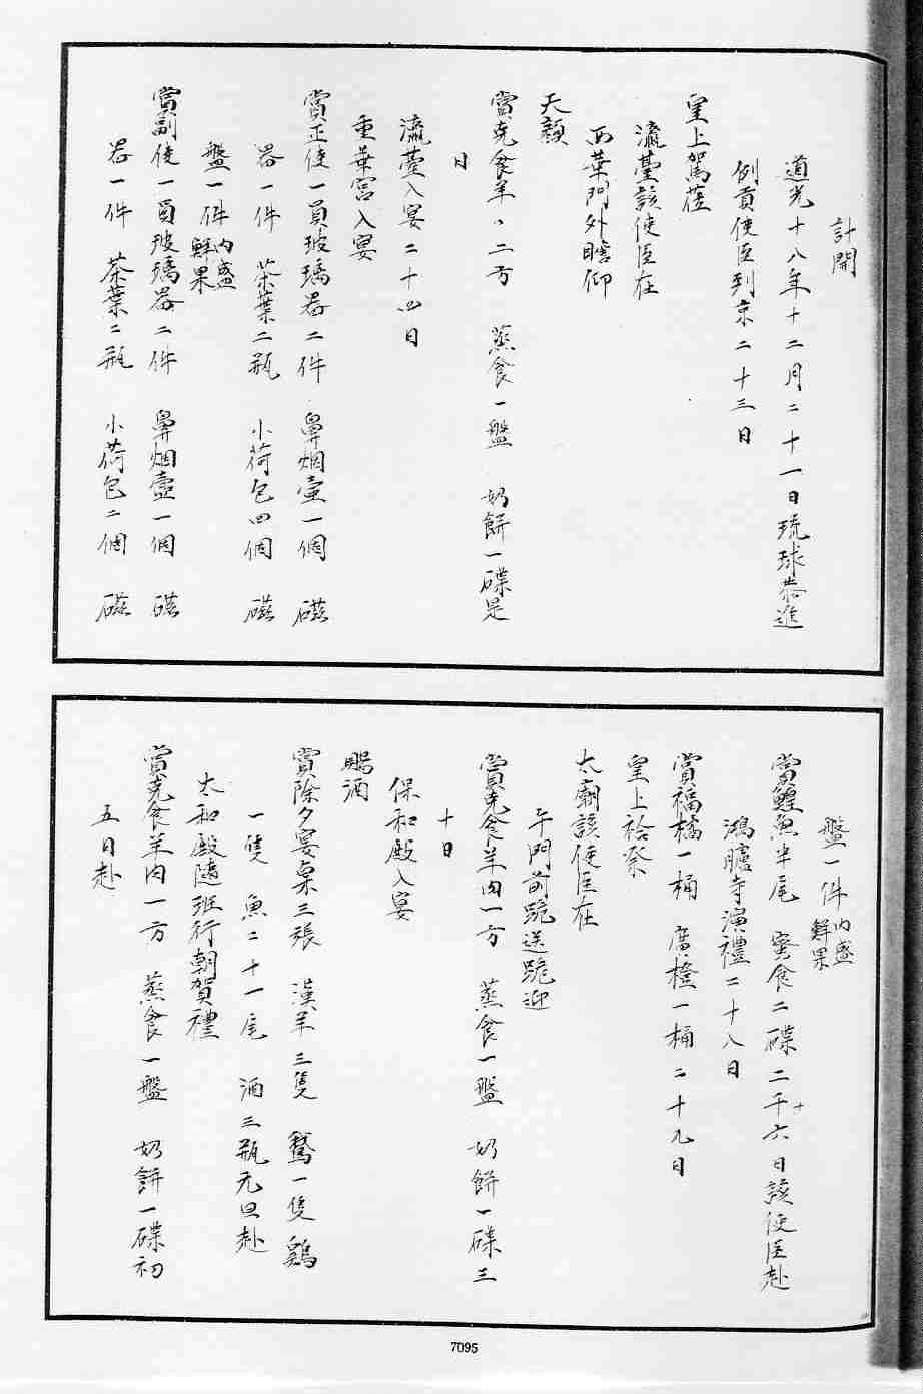 計開
道光十八年十二月二十一日琉球恭進
例貢使臣到京二十三日
皇上駕蒞
瀛臺該使臣在
西華門外瞻仰
天顏
賞克食羊、二方 蒸食一盤 奶餅一碟是
日
瀛臺入宴二十四日
重華宮入宴
賞正使一員玻璃器二件 鼻烟壷一個 磁
器一件 茶葉二瓶 小荷包四個 磁
盤一件內盛鮮果
賞副使一員玻璃器二件 鼻烟壷一個 磁
器一件 茶葉二瓶 小荷包二個 磁
盤一件內盛鮮果
賞鯉魚半尾 蜜食二碟 二千十六日該使臣赴
鴻臚寺演禮二十八日
賞福橘一桶 廣橙一桶 二十九日
皇上祫祭
太廟該使臣在
午門前跪送跪迎
賞克食羊肉一方 蒸食一盤 奶餅一碟三
十日
保和殿入宴
賜酒
賞除夕宴桌三張 漢羊三隻 鵞一隻 鷄
一隻 魚二十一尾 酒三瓶元旦赴
太和殿隨班行朝賀禮
賞克食羊肉一方 蒸食一盤 奶餅一碟初
五日赴
7095